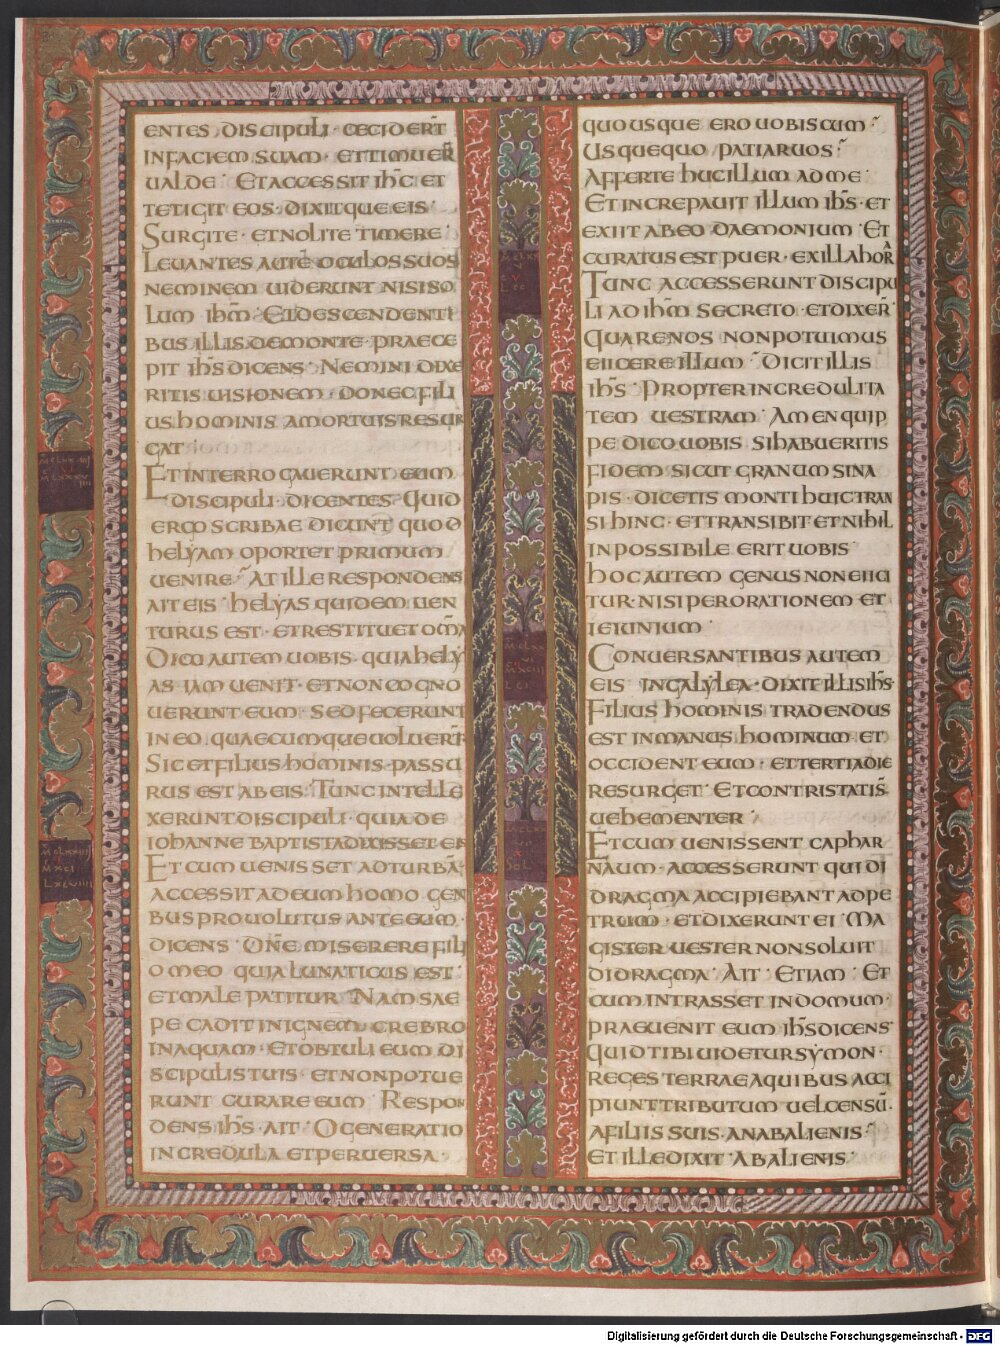 ENTES DISCIPULI · CECIDERT̅
INFACIEM SUAM · ETTIMUER̅
UALDE · ET ACCESSIT IHC̅ ET
TETIGIT EOS · DIXITQUE EIS
SURGITE · ETNOLITE TIMERE
LEUANTES AUTE̅ OCULOS SUOS
NEMINEM UIDERUNT NISI SO
LUM IHM̅ · ET DESCENDENTI
BUS ILLIS DEMONTE · PRAECE
PIT IHS̅ DICENS · NEMINI DIXE
RITIS UISIONEM · DONEC FILI
US HOMINIS AMORTUIS RESUR
GAT ·
ET INTERROGAUERUNT EUM
DISCIPULI · DICENTES · QUID
ERGO SCRIBAE DICUNT QUOD
HELYAM OPORTET PRIMUM
UENIRE · AT ILLE RESPONDENS
AIT EIS · HELYAS QUIDEM UEN
TURUS EST · ET RESTITUET OM̅A
DICO AUTEM UOBIS · QUIA HELY
AS IAM UENIT · ET NON COGNO
UERUNT EUM · SED FECERUNT
IN EO QUAECUMQUE UOLUER̅T
SIC ET FILIUS HOMINIS · PASSU
RUS EST AB EIS · TUNC INTELLE
XERUNT DISCIPULI · QUIA DE
IOHANNE BAPTISTA DIXISSET EIS
ET CUM UENISSET AD TURBA̅ ·
ACCESSIT AD EUM HOMO GEN
BUS PROUOLUTUS ANTE EUM ·
DICENS · DN̅E MISERERE FILI
O MEO QUIA LUNATICUS EST ·
ET MALE PATITUR NAM SAE
PE CADIT IN IGNEM · CREBRO
IN AQUAM · ET OBTULI EUM DI
SCIPULIS TUIS · ET NON POTUE
RUNT CURARE EUM RESPON
DENS IHS̅ · AIT · O GENERATIO
INCREDULA ET PERUERSA ·
QUOUSQUE ERO UOBISCUM ·
USQUEQUO PATIAR UOS ·
AFFERTE HUC ILLUM AD ME
ET INCREPAUIT ILLUM IHS̅ · ET
EXIIT AB EO DAEMONIUM ET
CURATUS EST PUER · EX ILLA HORA
TUNC ACCESSERUNT DISCIPU
LI AD IHM̅ SECRETO · ET DIXER̅
QUARE NOS NON POTUIMUS
EIICERE ILLUM · DICIT ILLIS
IHS̅ · PROPTER INCREDULITA
TEM UESTRAM · AMEN QUIP
PE DICO UOBIS SI HABUERITIS
FIDEM SICUT GRANUM SINA
PIS · DICETIS MONTI HUIC TRAN
SI HINC · ET TRANSIBIT ET NIHIL
INPOSSIBILE ERIT UOBIS
HOC AUTEM GENUS NON EIICI
TUR · NISI PER ORATIONEM ET
IEIUNIUM ·
CONUERSANTIBUS AUTEM
EIS IN GALYLEA · DIXIT ILLIS IHS̅ ·
FILIUS HOMINIS TRADENDUS
EST IN MANUS HOMINUM ET
OCCIDENT EUM · ET TERTIA DIE
RESURGET · ET CONTRISTATI S̅
UEHEMENTER ·
ET CUM UENISSENT CAPHAR
NAUM · ACCESSERUNT QUI DI
DRAGMA ACCIPIEBANT AD PE
TRUM · ET DIXERUNT EI · MA
GISTER UESTER NON SOLUIT
DIDRAGMA · AIT · ETIAM · ET
CUM INTRASSET IN DOMUM ·
PRAEUENIT EUM IHS̅ DICENS
QUID TIBI UIDETUR SYMON ·
REGES TERRAE A QUIBUS ACCI
PIUNT TRIBUTUM UEL CENSU̅ ·
A FILIIS SUIS · AN AB ALIENIS ·
ET ILLE DIXIT · AB ALIENIS ·
Digitalisierung gefördert durch die Deutsche Forschungsgemeinschaft - DFG